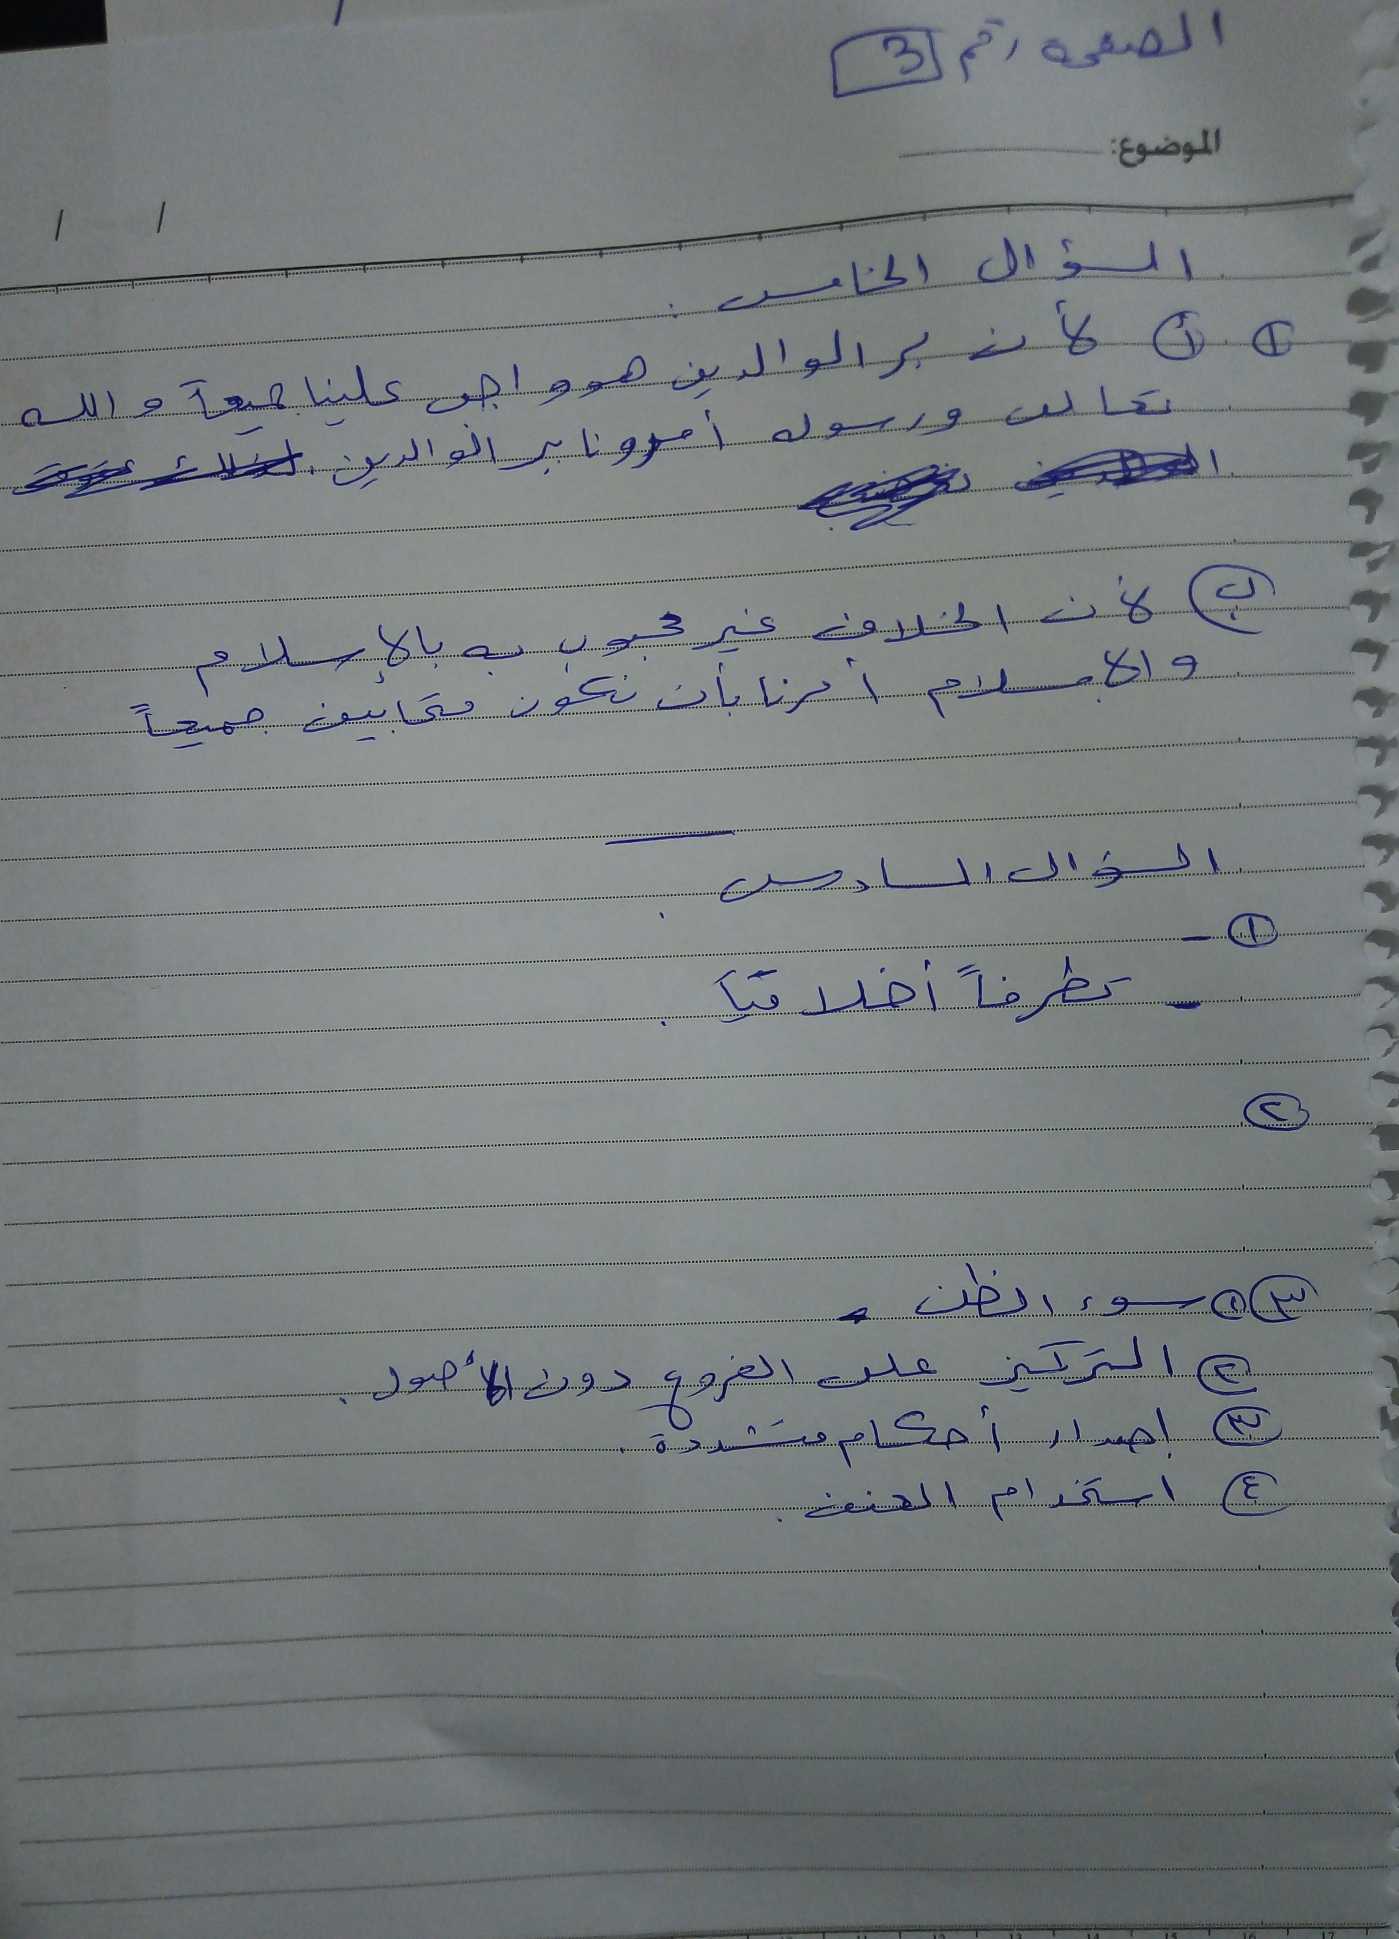 الصفحة رقم 3
الموضوع:
/ /
السؤال الخامس :
① أ لأن بر الوالدين هو واجب علينا جميعاً و الله
تعالى ورسوله أمرونا ببر الوالدين .
ب لأن الخلاف غير محبوب به بالإسلام
والإسلام أمرنا بأن نكون متحابين جميعاً
السؤال السادس .
① -
- تطرفاً أخلاقياً .
②
③ ① سوء الظن .
② التركيز على الفروع دون الأصول .
③ إصدار أحكام متشددة .
④ استخدام العنف .